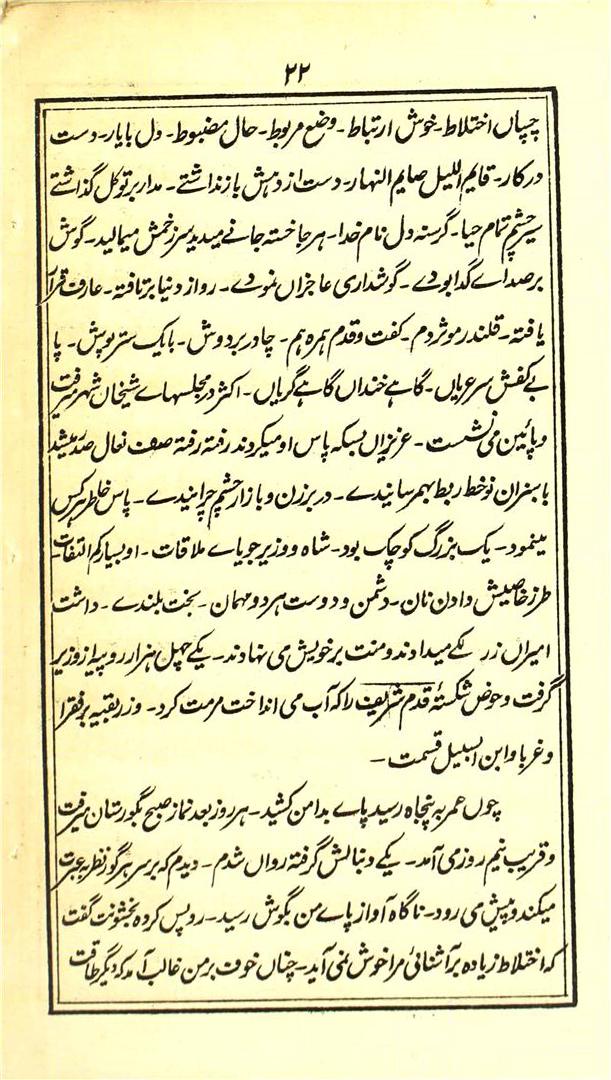 ۲۲
چسپاں اختلاط۔ خوش ارتباط۔ وضع مربوط۔ حال مضبوط۔ دل بایار۔ دست
درکار۔ قایم اللیل صایم النہار۔ دست از دہش باز نداشتے۔ مدار بر توکل گذاشتے
سیر چشم تمام حیا۔ گرسنہ دل نام خدا۔ ہر جا خستہ جانے میدید سر زخمش میمالید۔ گوش
بر صداے گدا بودے۔ گوشداری عاجزاں نمودے۔ رو از دنیا برتافتہ۔ عارف قرآں
یافتہ۔ قلندر موثر دم۔ کفت و قدم ہمرہ ہم۔ چادر بردوش۔ بایک ستر پوش۔ پا
بے کفش سر عریاں۔ گاہے خنداں گاہے گریاں۔ اکثر در مجلسہاے شیخان شہر میرفت
و پائین می نشست۔ عزیزاں بسکہ پاس او میکردند رفتہ رفتہ صف نعال صدر میشد
با سنران نوخط ربط بہمرسانیدے۔ در برزن و بازار چشم چرانیدے۔ پاس خاطر ہر کس
مینمود۔ یک بزرگ کوچک بود۔ شاہ و وزیر جویاے ملاقات۔ او بسیار کم التفات
طرز خاصیش دادن نان۔ دشمن و دوست ہر دو مہمان۔ بخت بلندے۔ داشت
امیراں زر لکے میدادند و منت بر خویش می نہادند۔ یکے چہل ہزار روپیہ از وزیر
گرفت و حوض شکستۂ قدم شریف را کہ آب می انداخت مرمت کرد۔ و زر بقیہ بر فقرا
و غربا و ابن السبیل قسمت۔
چوں عمر بہ پنجاہ رسید پاے بدامن کشید۔ ہر روز بعد نماز صبح بگورستان میرفت
و قریب نیم روز می آمد۔ یکے دنبالش گرفتہ رواں شدم۔ دیدم کہ بر سر ہر گور نظر بہ عبرت
میکند و پیش می رود۔ ناگاہ آواز پاے من بگوش رسید۔ رو پس کردہ بخشونت گفت
کہ اختلاط زیادہ بر آشنائی مرا خوش نمی آید۔ چناں خوف بر من غالب آمد کہ دیگر طاقت